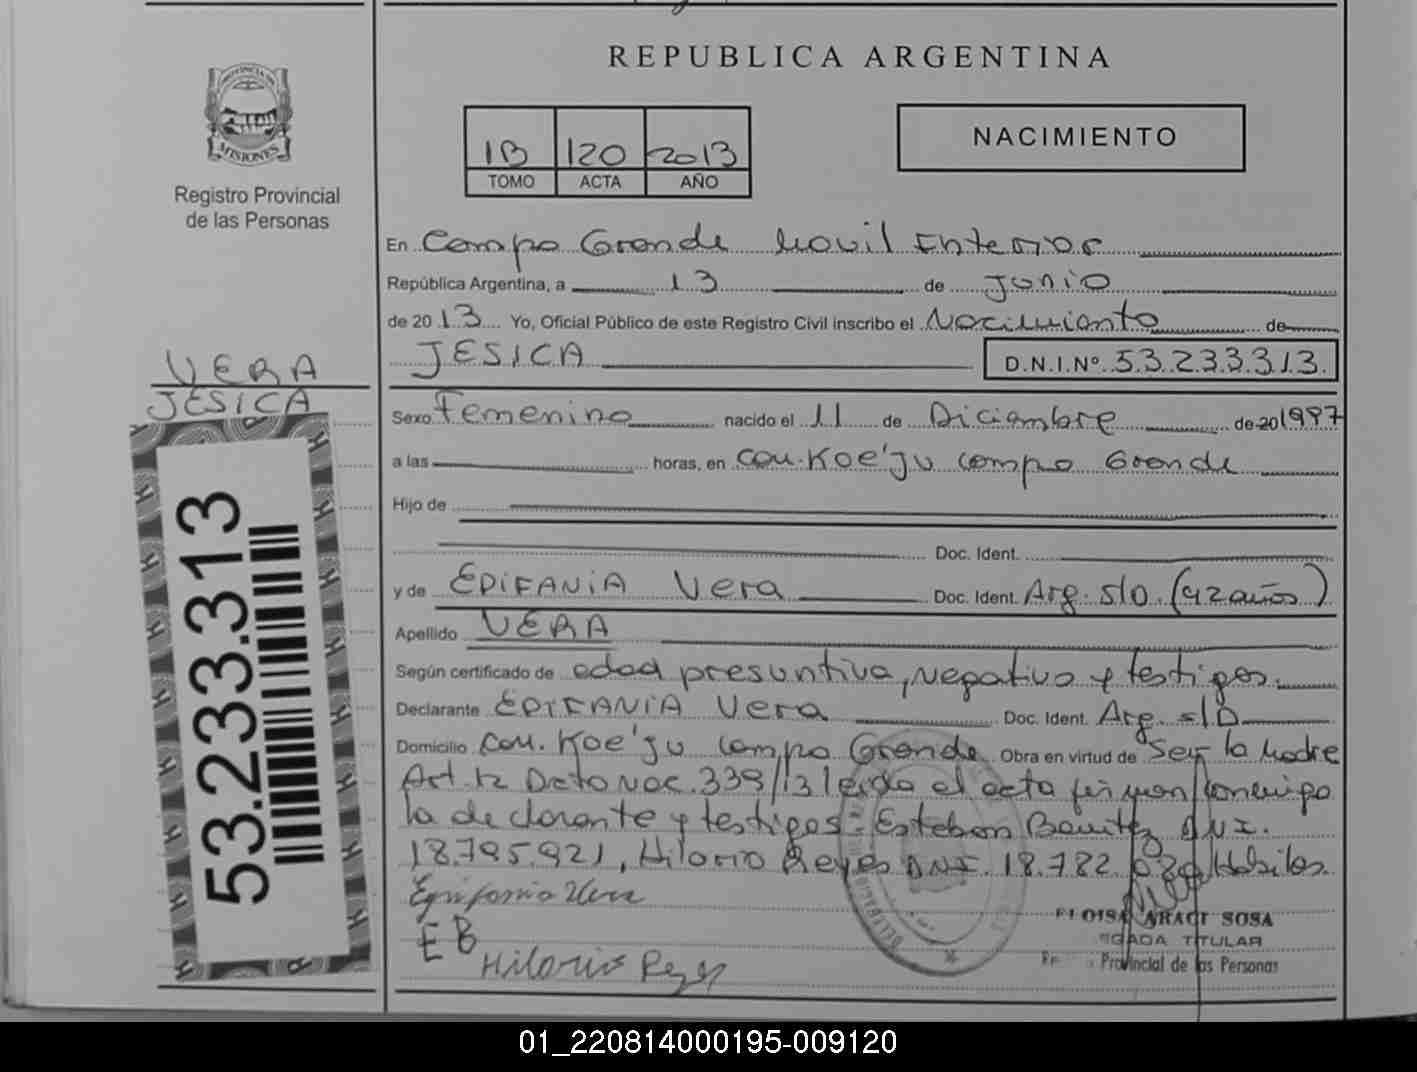 REPUBLICA ARGENTINA
PROVINCIA DE
MISIONES
Registro Provincial
de las Personas
1B 120 2013
TOMO ACTA AÑO
NACIMIENTO
En Campo Grande Movil Interior
República Argentina, a 13 de Junio
de 2013 Yo, Oficial Público de este Registro Civil inscribo el Nacimiento de
JESICA D.N.I.Nº 53.233.313.
VERA
JESICA
53.233.313
Sexo Femenino nacido el 11 de Diciembre de 20 1997
a las horas, en Com. Koe'ju Campo Grande
Hijo de
Doc. Ident.
y de EPIFANIA Vera Doc. Ident. Arg. S/D. (42 años)
Apellido VERA
Según certificado de edad presuntiva, Negativo y testigos.
Declarante EPIFANIA Vera Doc. Ident. Arg. S/D
Domicilio Com. Koe'ju Campo Grande Obra en virtud de Ser la Madre
Art. 12 Dcto Nac. 339/13 leida el acta firman conmigo
la declarante y testigos: Esteban Benitez D.N.I.
18.795.921, Hilario Reyes D.N.I. 18.782. Habiles.
Epifania Vera
EB
Hilario Reyes
ELOISA ARACI SOSA
TITULAR
Provincial de las Personas
01_220814000195-009120